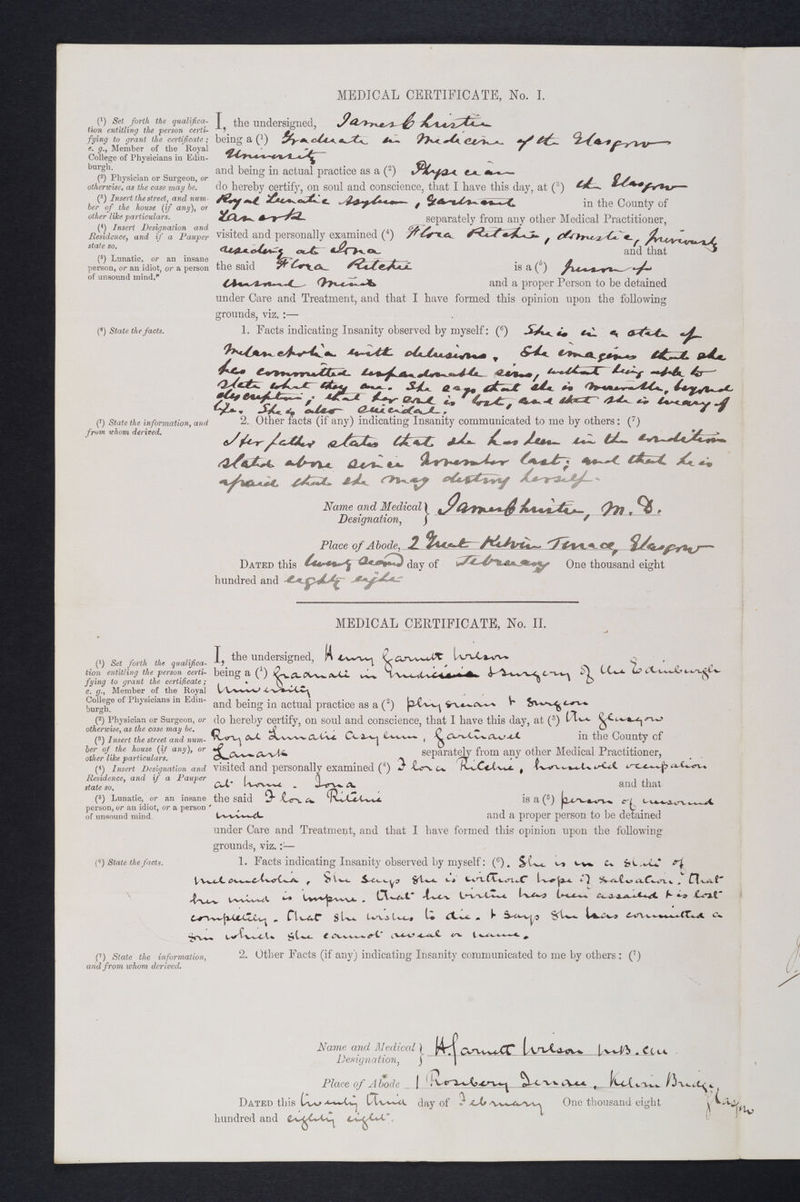 MEDICAL CERTIFICATE, No. I.
(¹) Set forth the qualifica-
tion entitling the person certi-
fying to grant the certificate;
e. g., Member of the Royal
College of Physicians in Edin-
burgh.
(²) Physician or Surgeon, or
otherwise, as the case may be.
(³) Insert the street, and num-
ber of the house (if any), or
other like particulars.
(⁴) Insert Designation and
Residence, and if a Pauper
state so.
(⁵) Lunatic, or an insane
person, or an idiot, or a person
of unsound mind."
I, the undersigned, James Christie
being a (¹) Graduate in Medicine of the Glasgow
University
and being in actual practice as a (²) Physician
do hereby certify, on soul and conscience, that I have this day, at (³) the Glasgow
Royal Lunatic Asylum, Gartnavel in the County of
Lanark separately from any other Medical Practitioner,
visited and personally examined (⁴) Flora Ritchie, domestic, previously
residing at Iona and that
the said Flora Ritchie is a (⁵) person of
unsound mind and a proper Person to be detained
under Care and Treatment, and that I have formed this opinion upon the following
grounds, viz. :—
(⁶) State the facts.
1. Facts indicating Insanity observed by myself: (⁶) She is in a state of
Melancholia with delusions, She imagines that she
has committed unpardonable sins, without being able to
state what they are. She says that she is miserable, beyond
description; that her soul is lost, and that she is weary of
life. She is also suicidal.
(⁷) State the information, and
from whom derived.
2. Other facts (if any) indicating Insanity communicated to me by others: (⁷)
Her father states that she has been in the condition
stated above since November last; and that he is
afraid that she may destroy herself.
Name and Medical Designation, James Christie, M.D.
Place of Abode, 2 Great Kelvin Terrace, Glasgow
DATED this twenty second day of February One thousand eight
hundred and eighty eight
MEDICAL CERTIFICATE, No. II.
(¹) Set forth the qualifica-
tion entitling the person certi-
fying to grant the certificate;
e. g., Member of the Royal
College of Physicians in Edin-
burgh.
(²) Physician or Surgeon, or
otherwise, as the case may be.
(³) Insert the street and num-
ber of the house (if any), or
other like particulars.
(⁴) Insert Designation and
Residence, and if a Pauper
state so,
(⁵) Lunatic, or an insane
person, or an idiot, or a person
of unsound mind.
I, the undersigned, Henry Garnett Wilson
being a (¹) Graduate in Medicine & Surgery of the Edinburgh
University
and being in actual practice as a (²) physician & Surgeon
do hereby certify, on soul and conscience, that I have this day, at (³) the Glasgow
Royal Lunatic Asylum, Gartnavel in the County of
Lanark separately from any other Medical Practitioner,
visited and personally examined (⁴) Flora Ritchie, household occupation
at home. Iona and that
the said Flora Ritchie is a (⁵) person of unsound
mind and a proper person to be detained
under Care and Treatment, and that I have formed this opinion upon the following
grounds, viz. :—
(⁶) State the facts.
1. Facts indicating Insanity observed by myself: (⁶). She is in a state of
melancholia, She says she is without hope of salvation. That
her mind is impure. That her virtue has been assailed & is lost
completely. That she wishes to die. & says she has committed a
sin which she cannot reveal or name.
(⁷) State the information,
and from whom derived.
2. Other Facts (if any) indicating Insanity communicated to me by others: (⁷)
Name and Medical Designation, H Garnett Wilson M.B. CM
Place of Abode 1 Rosebery Terrace, Kelvin Bridge,
DATED this twenty third day of February One thousand eight Glasgow
hundred and eighty eight.